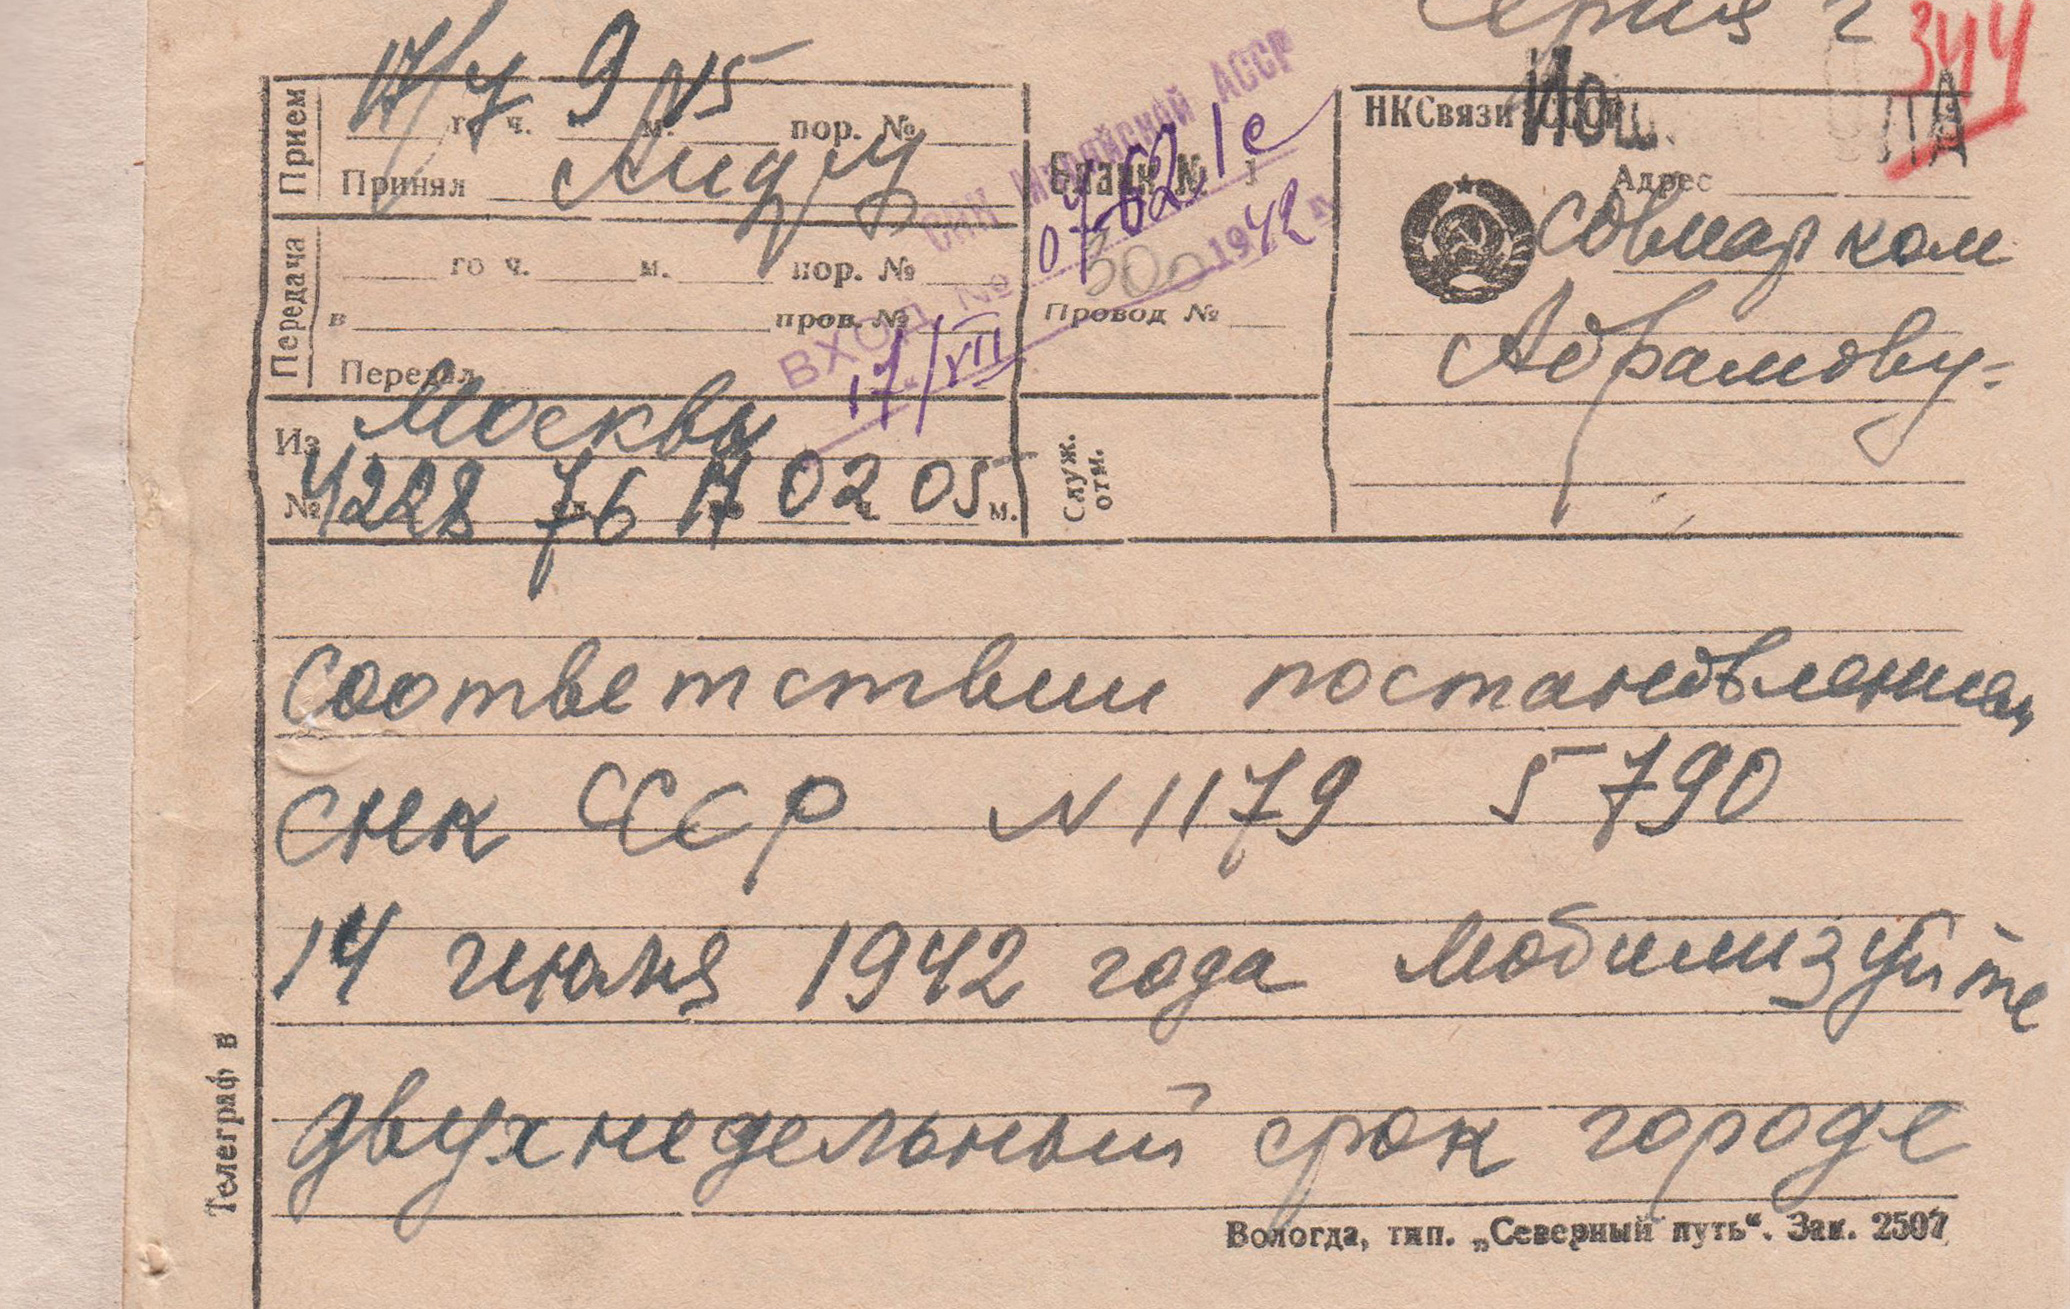 Серия Г
344
17/7 9 N5
Прием
го ч. м. пор. №
Принял
Передача
го ч. м. пор. №
в пров. №
Передал
Из Москвы
№ 4228 76 17 02 05 м.
СНК Марийской АССР
ВХОД. №
17/VII 1942 г.
Бланк № 1
300
Провод №
Служ. отм.
НКСвязи СССР
Йош. ЛА
Адрес
Совнарком
Абрамову=
Соответствии постановлением
СНК СССР N 1179 5790
14 июля 1942 года мобилизуйте
двухнедельный срок городе
Телеграф в
Вологда, тип. „Северный путь“. Зак. 2507